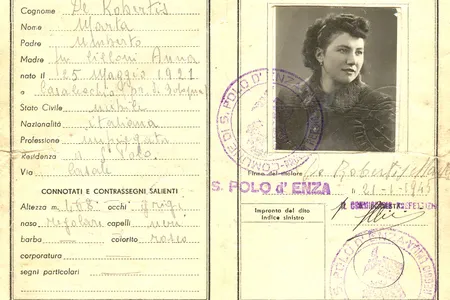 Cognome De Robertis
Nome Marta
Padre Umberto
Madre fu Anna
nato il 25 Maggio 1921
a
Stato Civile nubile
Nazionalità italiana
Professione impiegata
Residenza S. Polo
Via
CONNOTATI E CONTRASSEGNI SALIENTI
Altezza 1.68 occhi grigi
naso regolare capelli neri
barba colorito roseo
corporatura
segni particolari
COMUNE DI S. POLO D'ENZA
Firma del titolare De Robertis Marta
S. POLO d' ENZA
Impronta del dito
indice sinistro
S. POLO D'ENZA